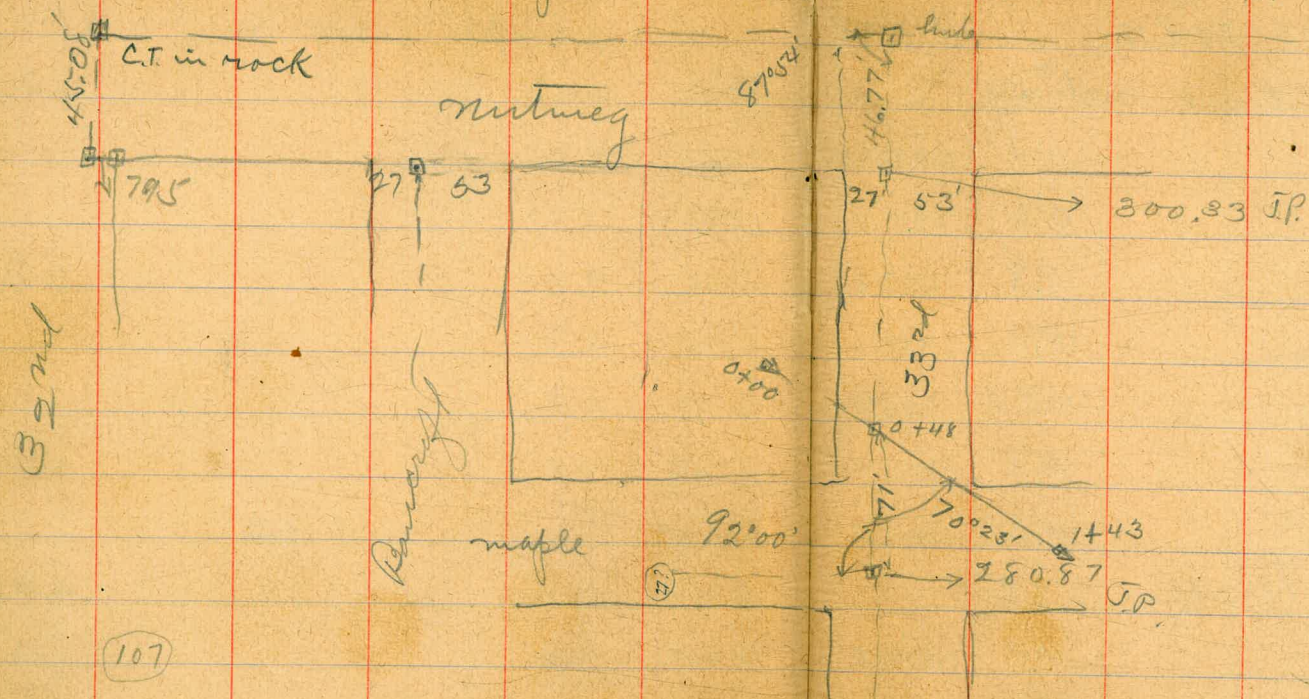 45.08'
C.T. in rock
Nutmeg
87°54'
46.77'
hub
2 795
27 53
27 53'
300.33 I.P.
32nd
Bancroft
33rd
0+00
0+48
71'
70°23'
1+43
maple
92°00'
280.87
I.P.
107